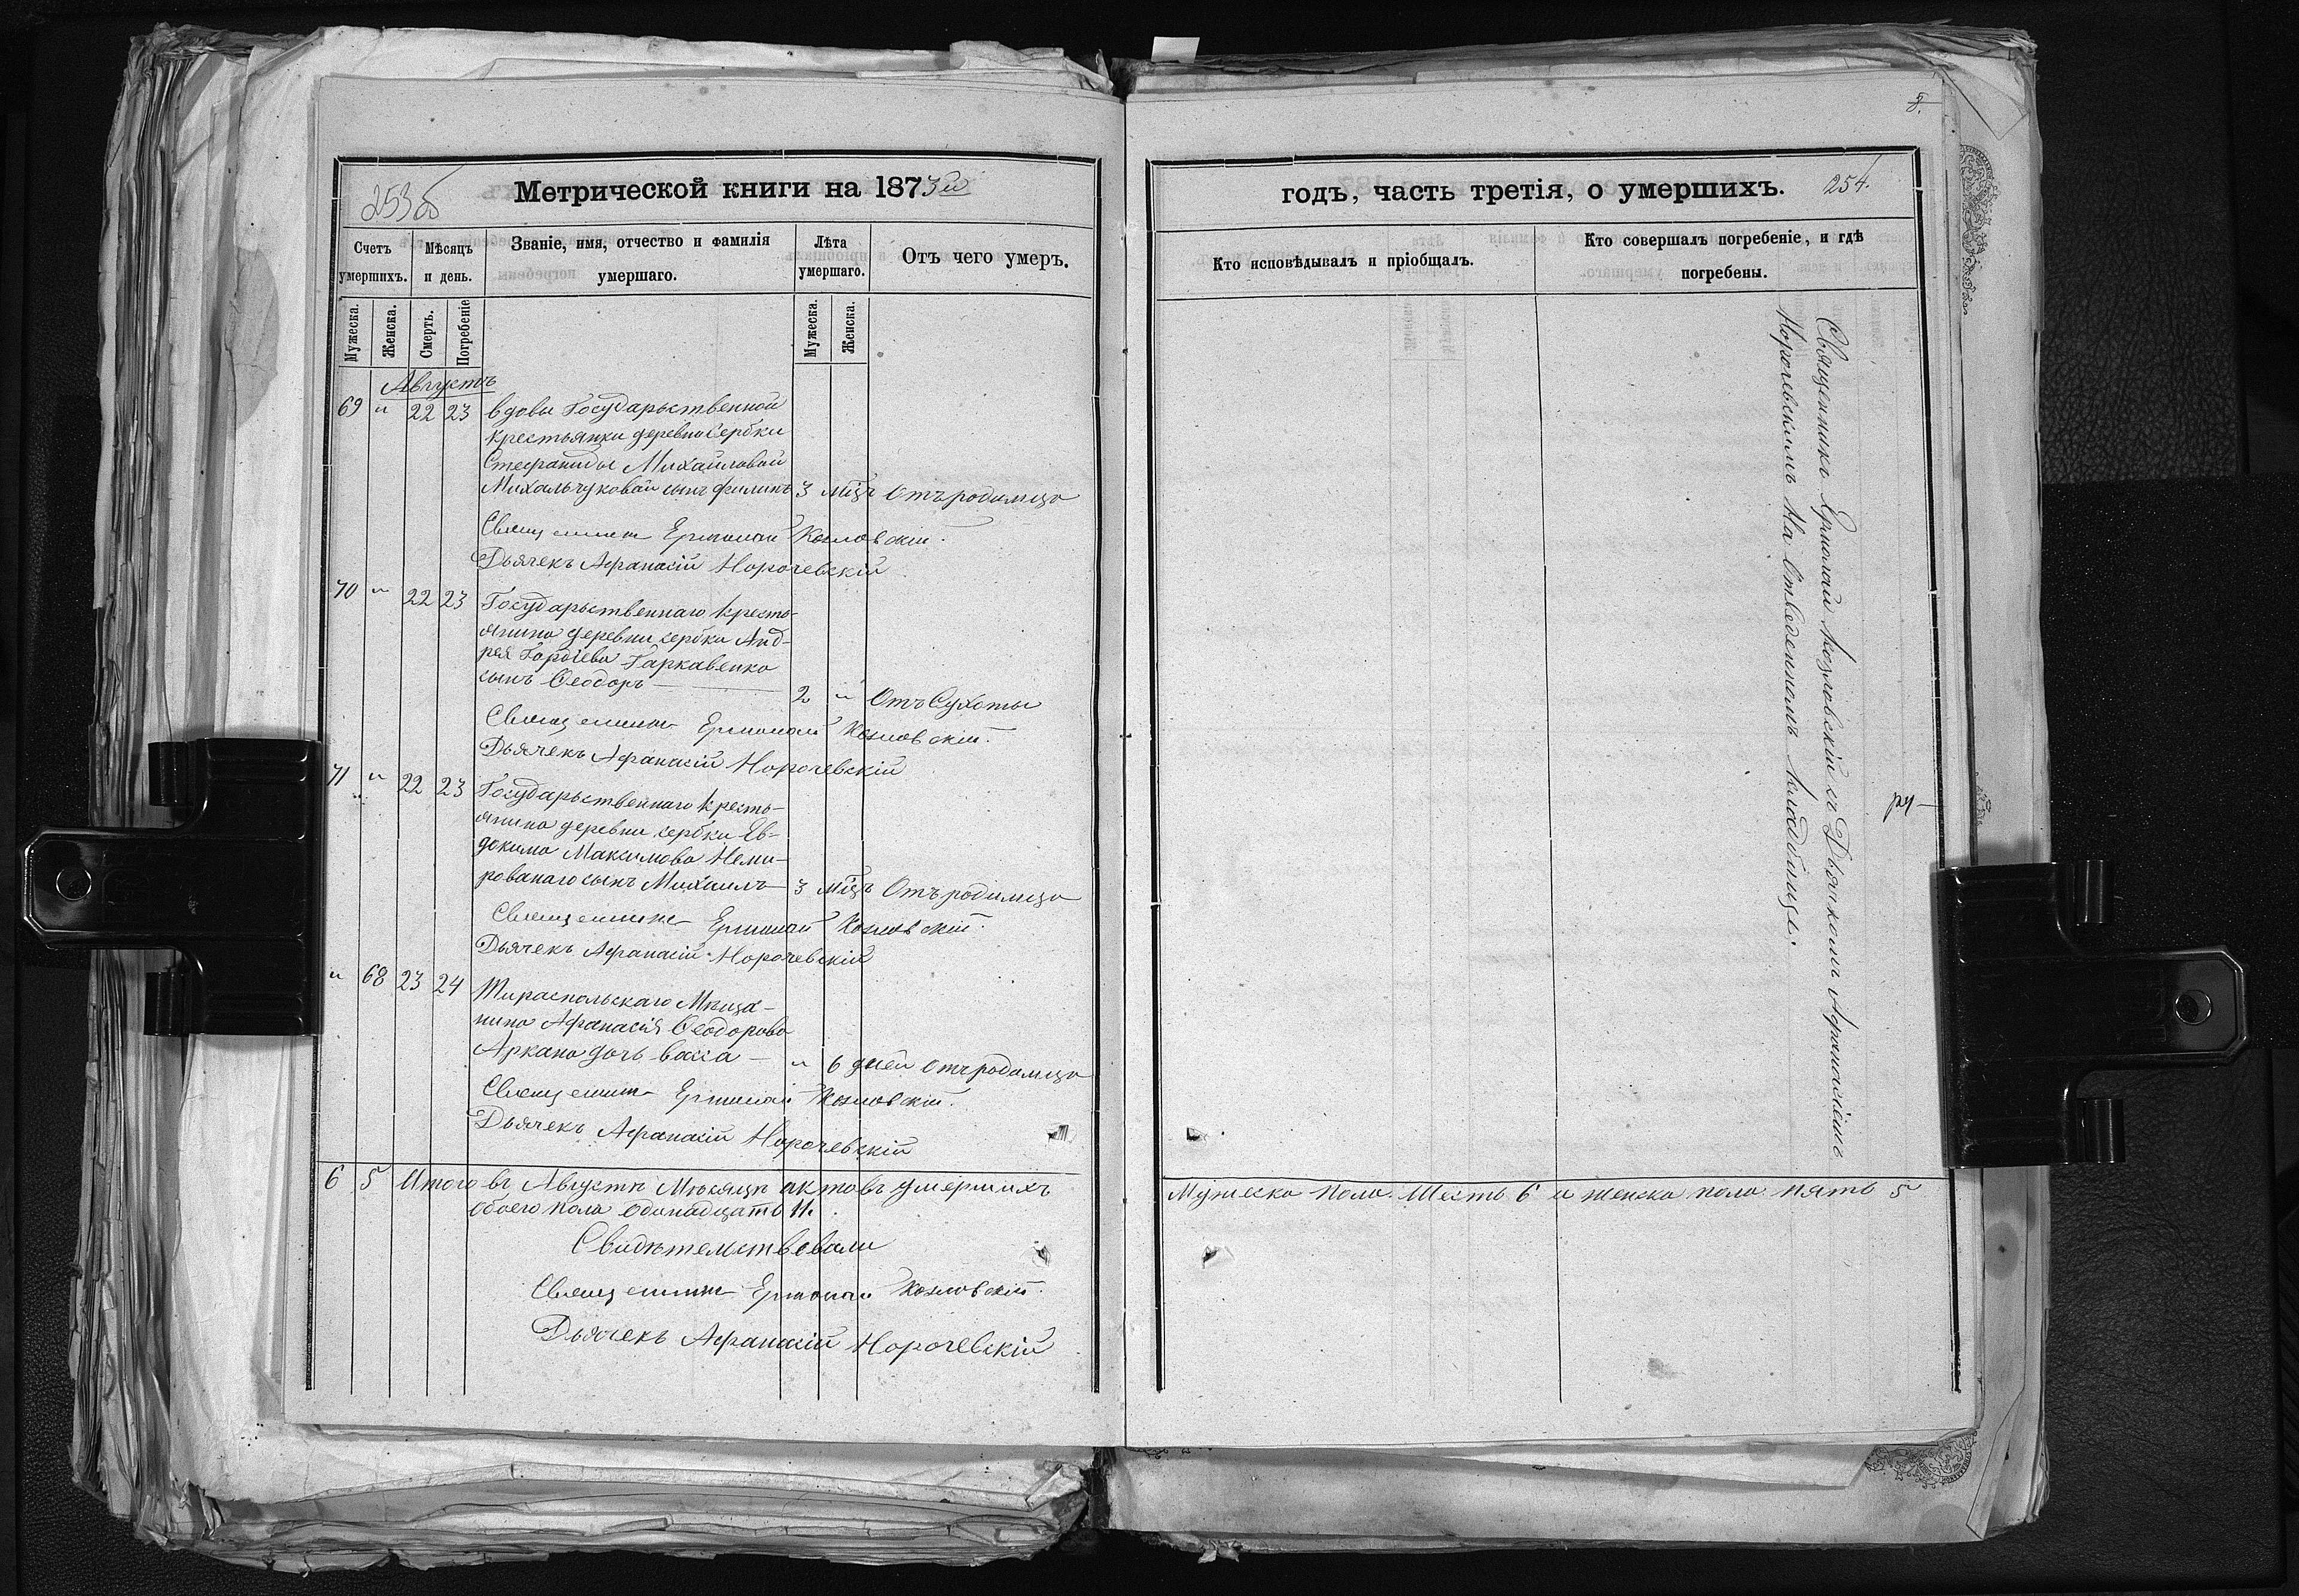 253 об
Метрической книги на 1873й
Счетъ умершихъ.
Мѣсяцъ и день.
Званіе, имя, отчество и фамилія умершаго.
Лѣта умершаго.
Отъ чего умеръ.
Мужеска.
Женска.
Смерть.
Погребеніе
Мужеска.
Женска.
Августъ
69 " 22 23 вдовы Государьственной
крестьянки деревни Сербки
Стефаниды Михайловой
Михальчуковой сынъ Филипъ 3 мѣц Отъ родимца
Священникъ Ермолай Козловскій.
Дьячекъ Афанасій Норочевскій
70 " 22 23 Государьственнаго кресть-
янина деревни сербки Анд-
рея Гордіева Гаркавенко
сынъ Ѳеодоръ — 2 " Отъ Сухоты
Священникъ Ермолай Козловскій.
Дьячекъ Афанасій Норочевскій
71 " 22 23 Государьственнаго кресть-
янина деревни сербки Ев-
докима Максимова Неми-
рованаго сынъ Михаилъ — 3 мѣц Отъ родимца
Священникъ Ермолай Козловскій.
Дьячекъ Афанасій Норочевскій
" 68 23 24 Тираспольскаго Мѣща-
нина Афанасія Ѳеодорова
Аркана дочь Васса — " 6 дней отъ родимца
Священникъ Ермолай Козловскій.
Дьячекъ Афанасій Норочевскій
6 5 Итого въ Августѣ Мѣсяцѣ актовъ умершихъ
обоего пола одинадцать 11.
Свидѣтельствовали
Священникъ Ермолай Козловскій.
Дьячекъ Афанасій Норочевскій
годъ, часть третія, о умершихъ.
254.
Кто исповѣдывалъ и пріобщалъ.
Кто совершалъ погребеніе, и гдѣ
погребены.
Священникъ Ермолай Козловскій съ Дьячкомъ Афанасіемъ
Норочевскимъ на Отведенномъ кладбищѣ.
ру—
Мужеска пола Шесть 6 и женска пола пять 5